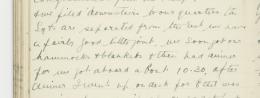 we filed downstairs to our quarters the
Sgts are separated from the rest we have
a fairly good little joint, we soon got our
hammocks & blankets & then had dinner
for we got aboard about 10-30, after
dinner I went up on deck for it was